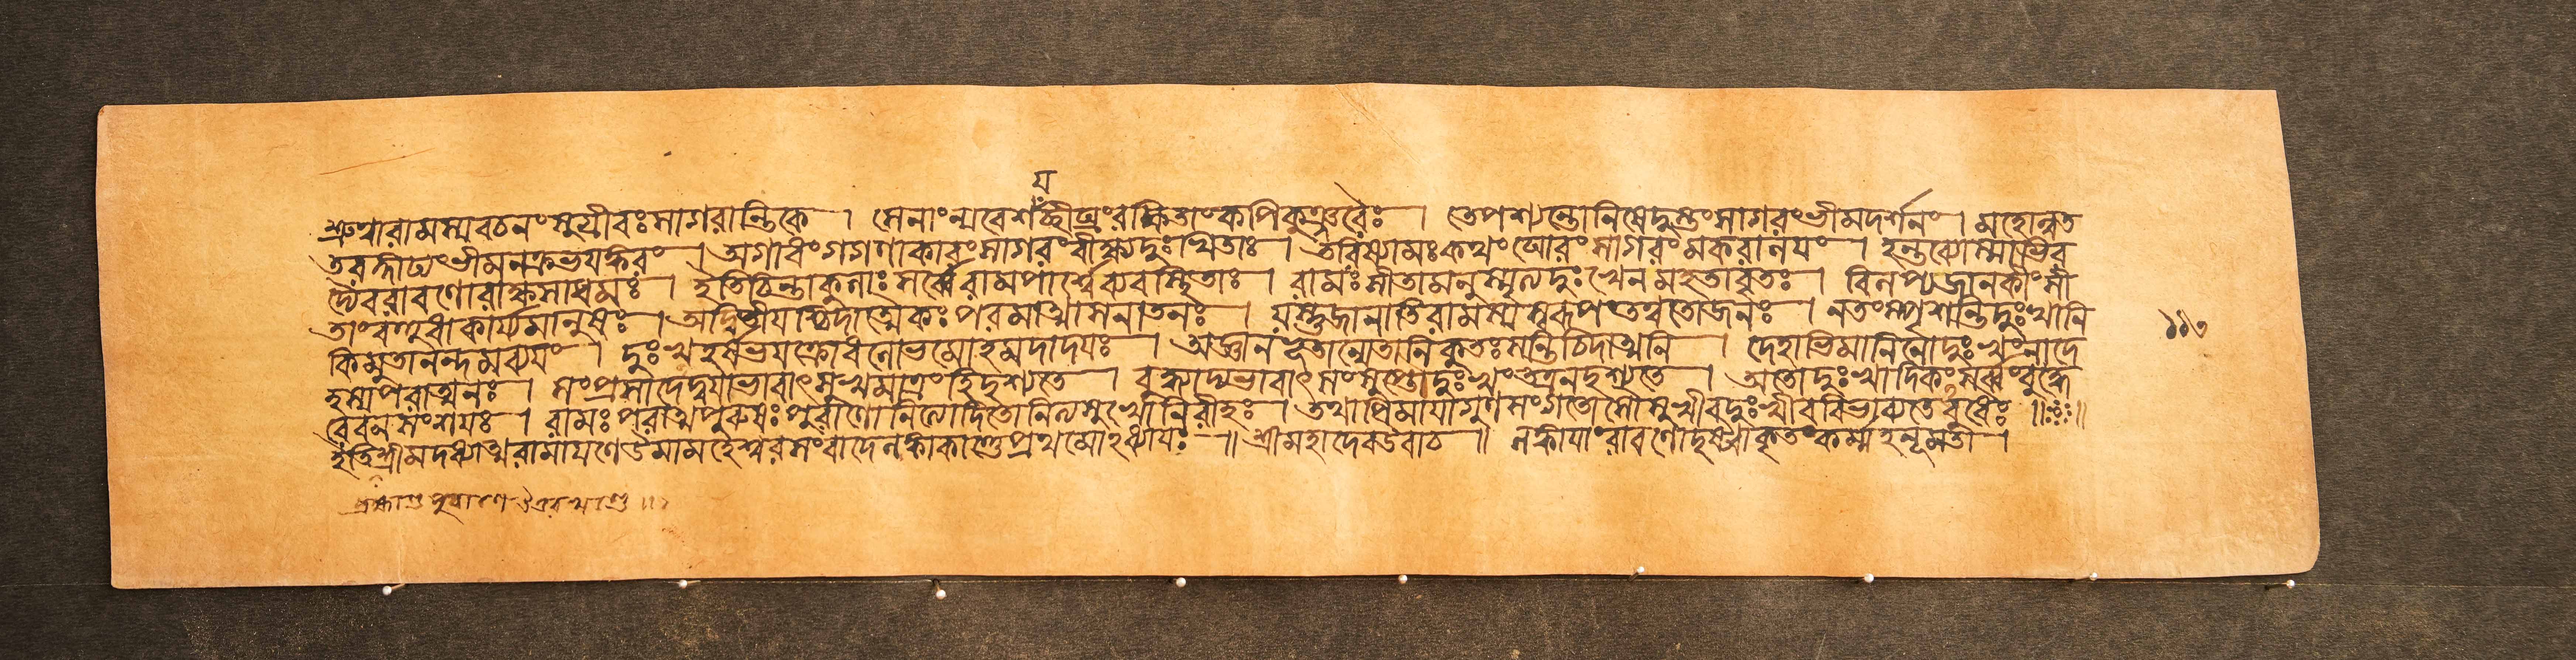 য
শ্রুত্বারামস্যবচনংসুগ্রীবঃসাগরান্তিকে । সেনাংন্যবেশয়চ্ছীঘ্রংরক্ষিতাংকপিকুঞ্জরৈঃ । তেপশ্যন্তোনিষেদুস্তংসাগরংভীমদর্শনং । মহোন্নত
তরঙ্গাঢ্যংভীমনক্রভয়ঙ্করং । অগাধংগগণাকারংসাগরংবীক্ষ্যদুঃখিতাঃ । তরিষ্যামঃকথংঘোরংসাগরংমকরালয়ং । হন্তব্যোস্মাভির
দ্যৈবরাবণোরাক্ষসাধমঃ । ইতিচিন্তাকুলাঃসর্ব্বেরামপার্শ্বেব্যবস্থিতাঃ । রামঃসীতামনুস্মৃত্যদুঃখেনমহতাবৃতঃ । বিলপ্যজানকীংসী
তাংবহুধাকার্য্যমানুষঃ । অদ্বিতীয়শ্চিদাত্মেকঃপরমাত্মাসনাতনঃ । যস্তুজানাতিরামস্যস্বরূপংতত্বতোজনঃ । নতংস্পৃশন্তিদুঃখানি
কিমুতানন্দমব্যয়ং । দুঃখহর্ষভয়ক্রোধলোভমোহমদাদয়ঃ । অজ্ঞানংহ্যেতান্যেতানিকুতঃসন্তিচিদাত্মনি । দেহাভিমানিনোদুঃখংনাদে
হস্যপরাত্মনঃ । সংপ্রসাদেদ্বয়াভাবাৎসুখমাত্রংহিদৃশ্যতে । বুদ্ধ্যাদ্যভাবাৎসংশুদ্ধেদুঃখংতত্রনদৃশ্যতে । অতোদুঃখাদিকংসর্ব্বংবুদ্ধে
রেবনসংশয়ঃ । রামঃপরাত্মপুরুষঃপুরাণোনিত্যোদিতোনিত্যসুখোনিরীহঃ । তথাপিমায়াগুণসংগতোসৌসুখীবদুঃখীববিভাব্যতেঽবুধৈঃ ॥ঃঃ॥
ইতিশ্রীমদধ্যাত্মরামায়ণেউমামহেশ্বরসংবাদেলঙ্কাকাণ্ডেপ্রথমোঽধ্যায়ঃ ॥ শ্রীমহাদেবউবাচ ॥ লঙ্কায়াংরাবণোদৃষ্ট্বাকৃতংকর্ম্মহনূমতা ।